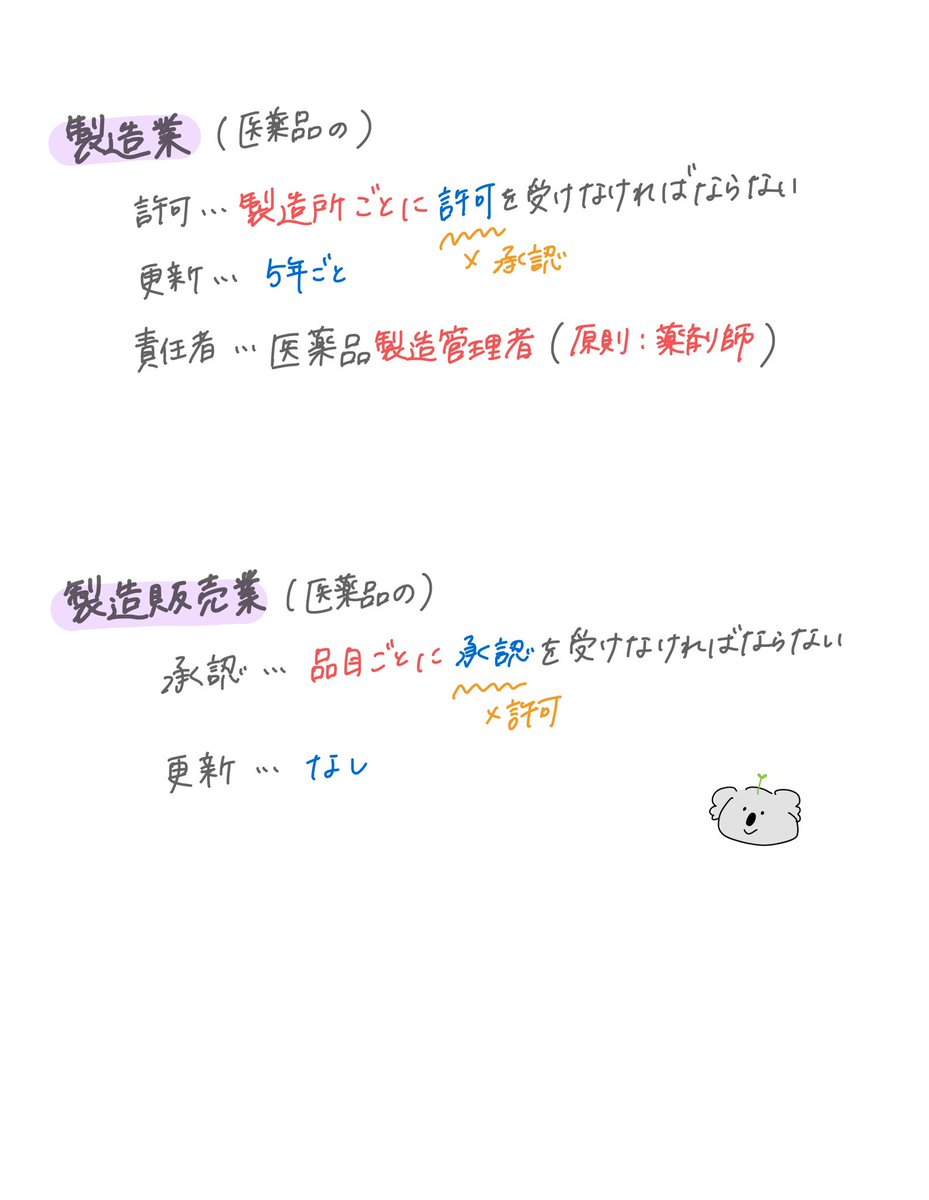 製造業 (医薬品の)
許可… 製造所ごとに許可を受けなければならない
× 承認
更新… 5年ごと
責任者… 医薬品製造管理者(原則:薬剤師)
製造販売業 (医薬品の)
承認… 品目ごとに承認を受けなければならない
×許可
更新… なし